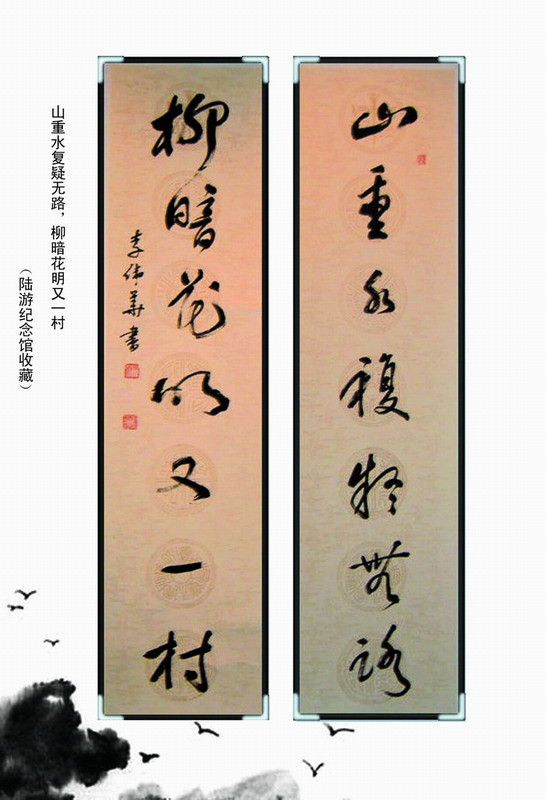 山重水複疑無路
柳暗花明又一村
李偉華書
山重水复疑无路，柳暗花明又一村
（陆游纪念馆收藏）